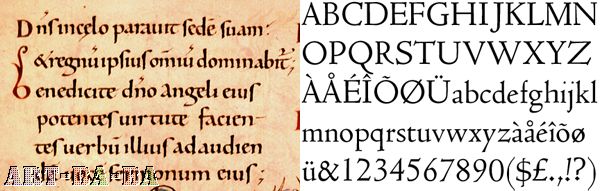 Dn̄s in celo parauit sedē suam:
& regnū ipsius om̄iū dominabit᷑;
Benedicite dn̄o angeli eius
potentes uirtute facien-
tes uerbū illius ad audien
sermonum eius;
ART-DA-DA
ABCDEFGHIJKLMN
OPQRSTUVWXYZ
ÀÅÉÎÕØÜabcdefghijkl
mnopqrstuvwxyzàåéîõø
ü&1234567890($£.,!?)